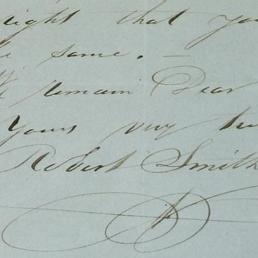 that you
same. —
remain Dear
Yours very
Robert Smith